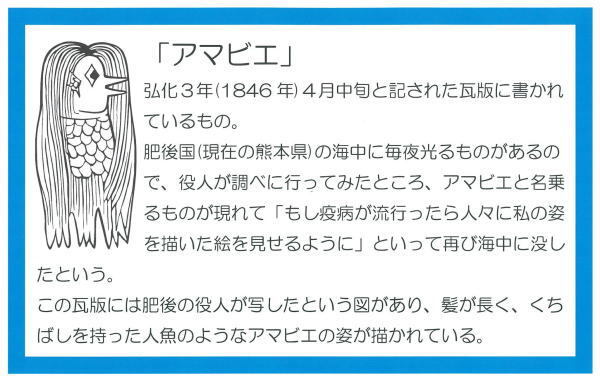 「アマビエ」
弘化３年(1846 年)４月中旬と記された瓦版に書かれ
ているもの。
肥後国(現在の熊本県)の海中に毎夜光るものがあるの
で、役人が調べに行ってみたところ、アマビエと名乗
るものが現れて「もし疫病が流行ったら人々に私の姿
を描いた絵を見せるように」といって再び海中に没し
たという。
この瓦版には肥後の役人が写したという図があり、髪が長く、くち
ばしを持った人魚のようなアマビエの姿が描かれている。